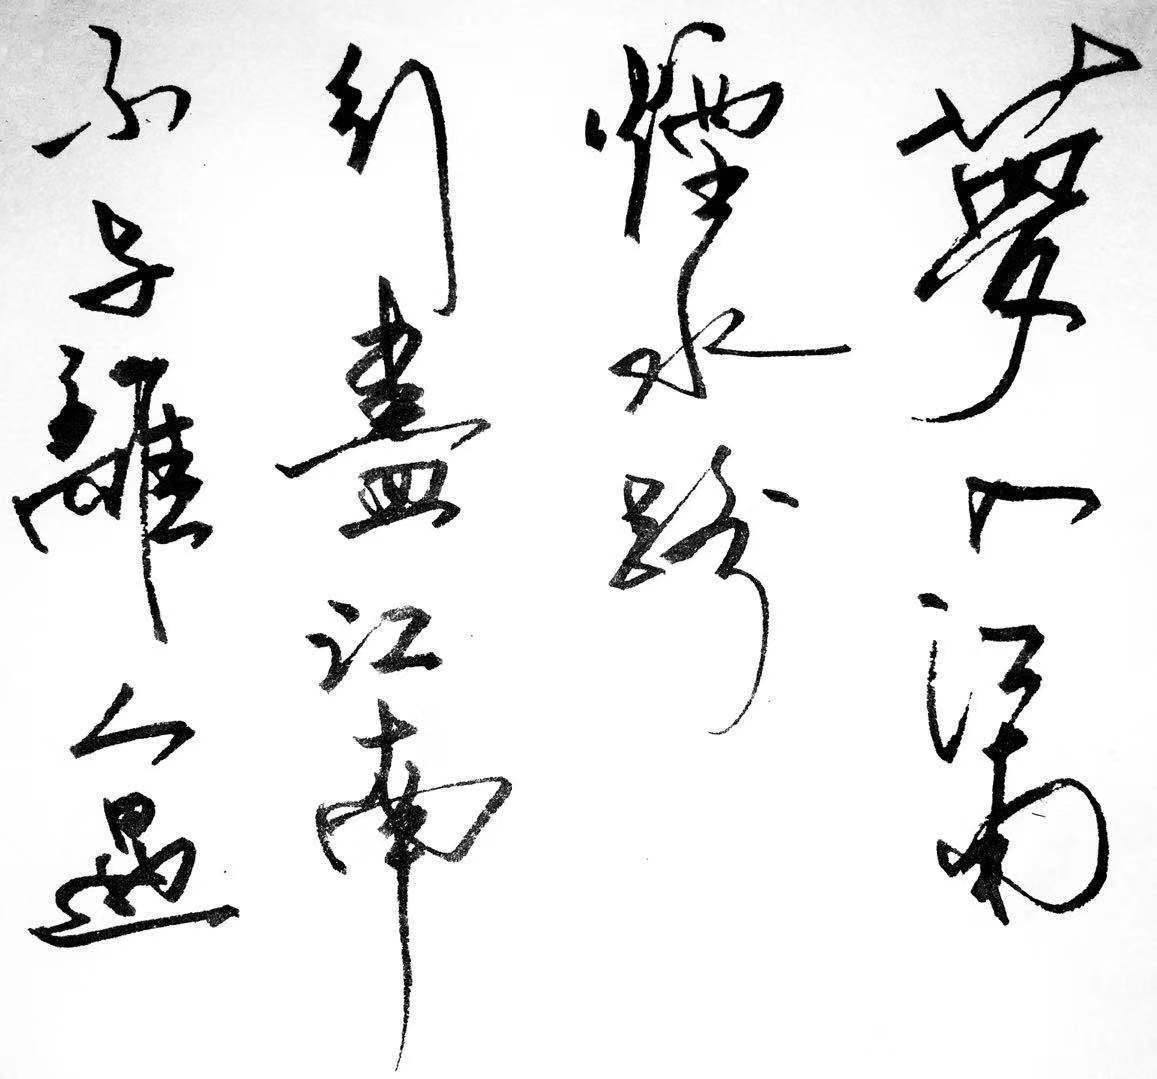 夢入江南
煙水路
行盡江南
不与離人遇